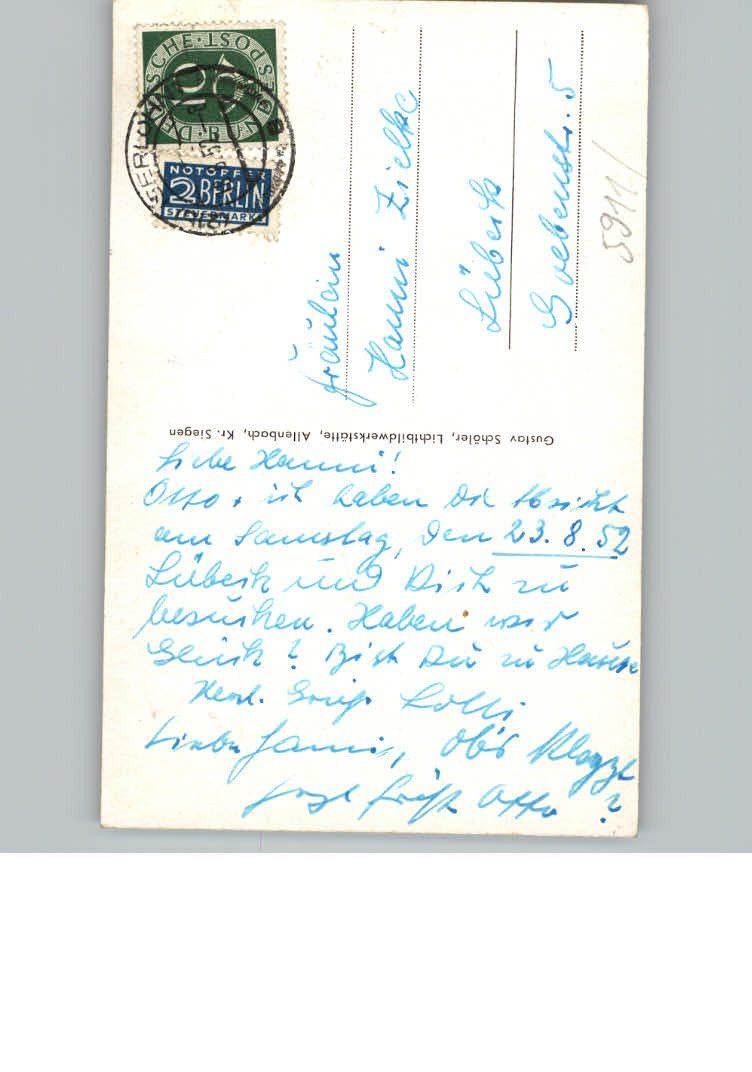 DEUTSCHE BUNDESPOST
10
ISERLOHN
NOTOPFER
2 BERLIN
STEUERMARKE
Fräulein
Hanni Zielke
Lübeck
Goebenstr. 5
5911/
Gustav Schäler, Lichtbildwerkstätte, Allenbach, Kr. Siegen
Liebe Hanni!
Otto + ich haben die Absicht
am Samstag, den 23.8.52
Lübeck und Dich zu
besuchen. Haben wir
Glück? Bist Du zu Hause
Herzl. Grüße Lolli
Liebe Hanni, ob's klappt
fragt grüßt Otto ?